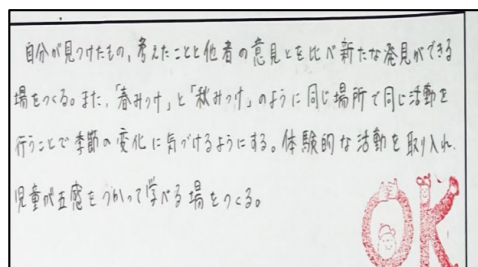 自分が見つけたもの、考えたことと他者の意見とを比べ新たな発見ができる
場をつくる。また、「春みっけ」と「秋みっけ」のように同じ場所で同じ活動を
行うことで季節の変化に気づけるようにする。体験的な活動を取り入れ、
児童が五感をつかって学べる場をつくる。
OK